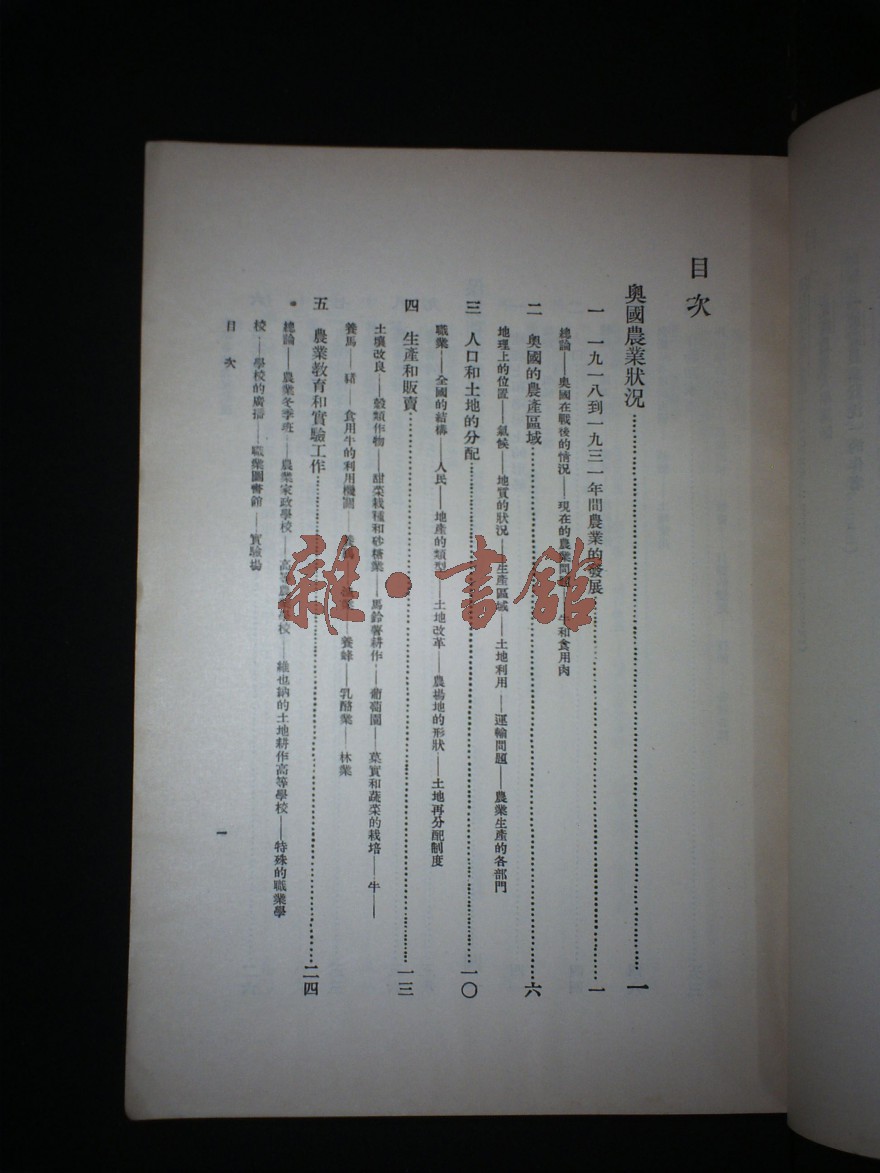 目次
奧國農業狀況……一
一 一九一八到一九三一年間農業的發展……一
總論——奧國在戰後的情況——現在的農業問題——牛和食用肉
二 奧國的農產區域……六
地理上的位置——氣候——地質的狀況——生產區域——土地利用——運輸問題——農業生產的各部門
三 人口和土地的分配……一〇
職業——全國的結構——人民——地產的類型——土地改革——農場地的形狀——土地再分配制度
四 生產和販賣……一三
土壤改良——穀類作物——甜菜栽種和砂糖業——馬鈴薯耕作——葡萄園——菓實和蔬菜的栽培——牛——
養馬——豬——食用牛的利用機關——養蜂——乳酪業——林業
五 農業教育和實驗工作……二四
總論——農業冬季班——農業家政學校——高等農業學校——維也納的土地耕作高等學校——特殊的職業學
校——學校的廣播——職業圖書館——實驗場
目次
一
雜·書館